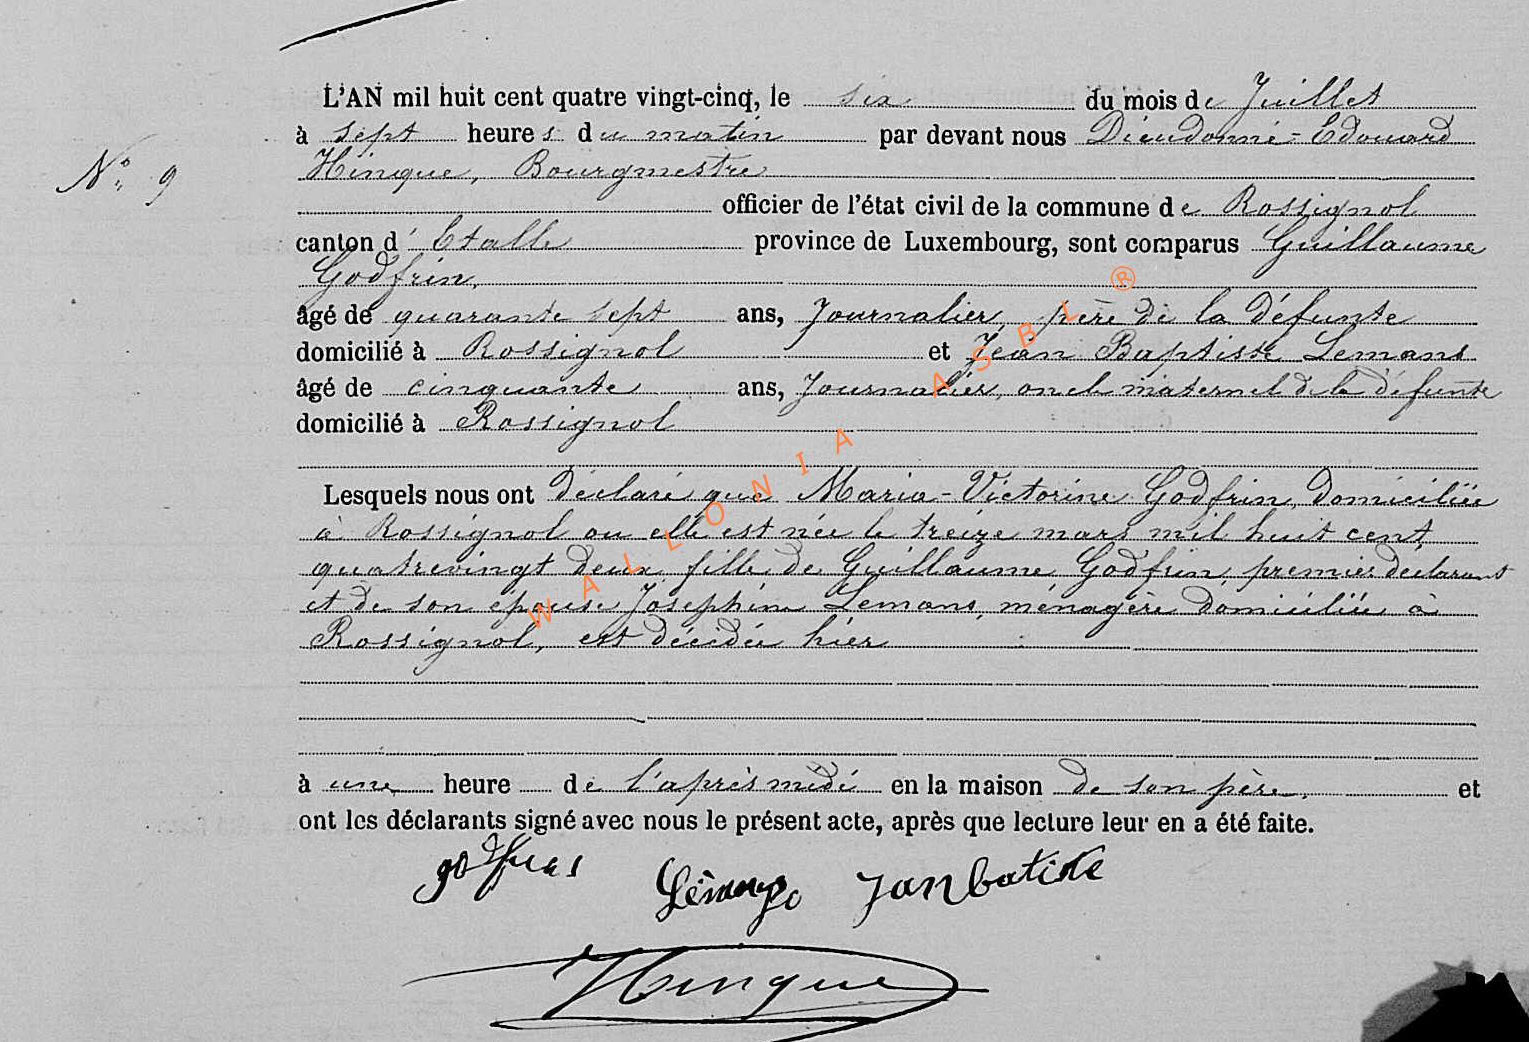 L'AN mil huit cent quatre vingt-cinq, le six du mois de Juillet
à sept heures du matin par devant nous Dieudonné-Edouard
N° 9
Hinque, Bourgmestre
officier de l'état civil de la commune de Rossignol
canton d'Etalle province de Luxembourg, sont comparus Guillaume
Godfrin,
âgé de quarante sept ans, Journalier, père de la défunte
domicilié à Rossignol et Jean Baptiste Lemans
âgé de cinquante ans, Journalier, oncle maternel de la défunte
domicilié à Rossignol
Lesquels nous ont déclaré que Maria-Victorine Godfrin, domiciliée
à Rossignol ou elle est née le treize mars mil huit cent
quatrevingt deux, fille de Guillaume Godfrin, premier déclarant
et de son épouse Joséphine Lemans, ménagère domiciliée à
Rossignol, est décédée hier
à une heure de l'après midi en la maison de son père, et
ont les déclarants signé avec nous le présent acte, après que lecture leur en a été faite.
Janbatiste
Hinque
WALLONIA ASBL ®